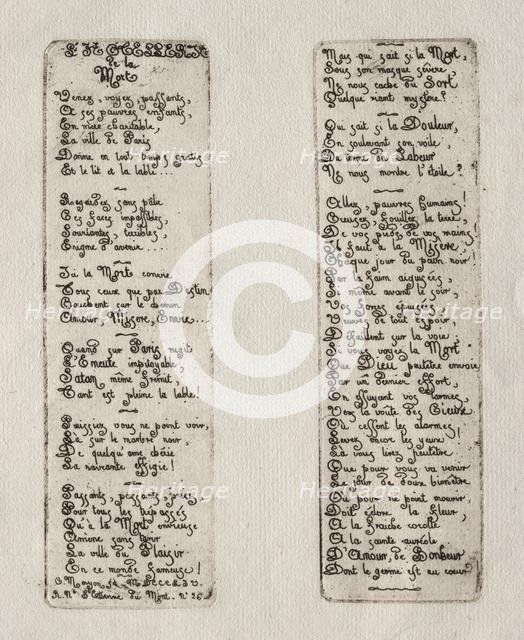 L'HOTELLERIE
de la
Mort
Venez, voyez, passants,
A ses pauvres enfants,
En mère charitable,
La ville de Paris
Donne en tout temps gratis
Et le lit et la table...
Regardez sans pâlir
Ces faces impassibles,
Souriantes, terribles,
Enigme d'avenir....
Ici la Mort convie
Tous ceux que par Destin
Couchent sur le chemin
Amour, Misère, Envie...
Quand sur Paris rugit
L'Emeute impitoyable,
Satan même frémit,
Tant est pleine la table!
Puissiez vous ne point voir,
Là sur le marbre noir,
De quelqu'ame chérie
La navrante effigie!
Passants, passants, priez
Pour tous les trépassés
Qu'à la Mort envieuse
Amène sans tarir
La ville du Plaisir
En ce monde fameuse!
C. Meryon ft. M DCCCLIV.
R. Nve St Etienne du Mont. No 26.
Mais qui sait si la Mort,
Sous son masque sévère
Ne nous cache du Sort
Quelque riant mystère?
Qui sait si la Douleur,
En soulevant son voile,
Du terme du Labeur
Ne nous montre l'étoile?
Allez, pauvres humains!
Creusez, fouillez la terre,
De vos pieds, de vos mains!
Il faut à la Misère,
Chaque jour du pain noir!
Par la faim aiguisées,
même avant le soir
forces épuisées
de tout espoir
faillent sur la voie,
vous voyez la Mort
Que Dieu peutêtre envoie
Par un dernier effort,
En essuyant vos larmes,
Vers la voûte des Cieux
Où cessent les alarmes!
Levez encor les yeux
Là vous lirez peutêtre
Que pour vous va venir
Le jour de doux bienêtre
Où pour ne point mourir,
Doit éclore la fleur,
A la fraîche corolle
A la sainte auréole
D'Amour, de Bonheur
Dont le germe est au cœur
Heritage
Heritage
Heritage
Heritage
Heritage
Heritage
Heritage
Heritage
©